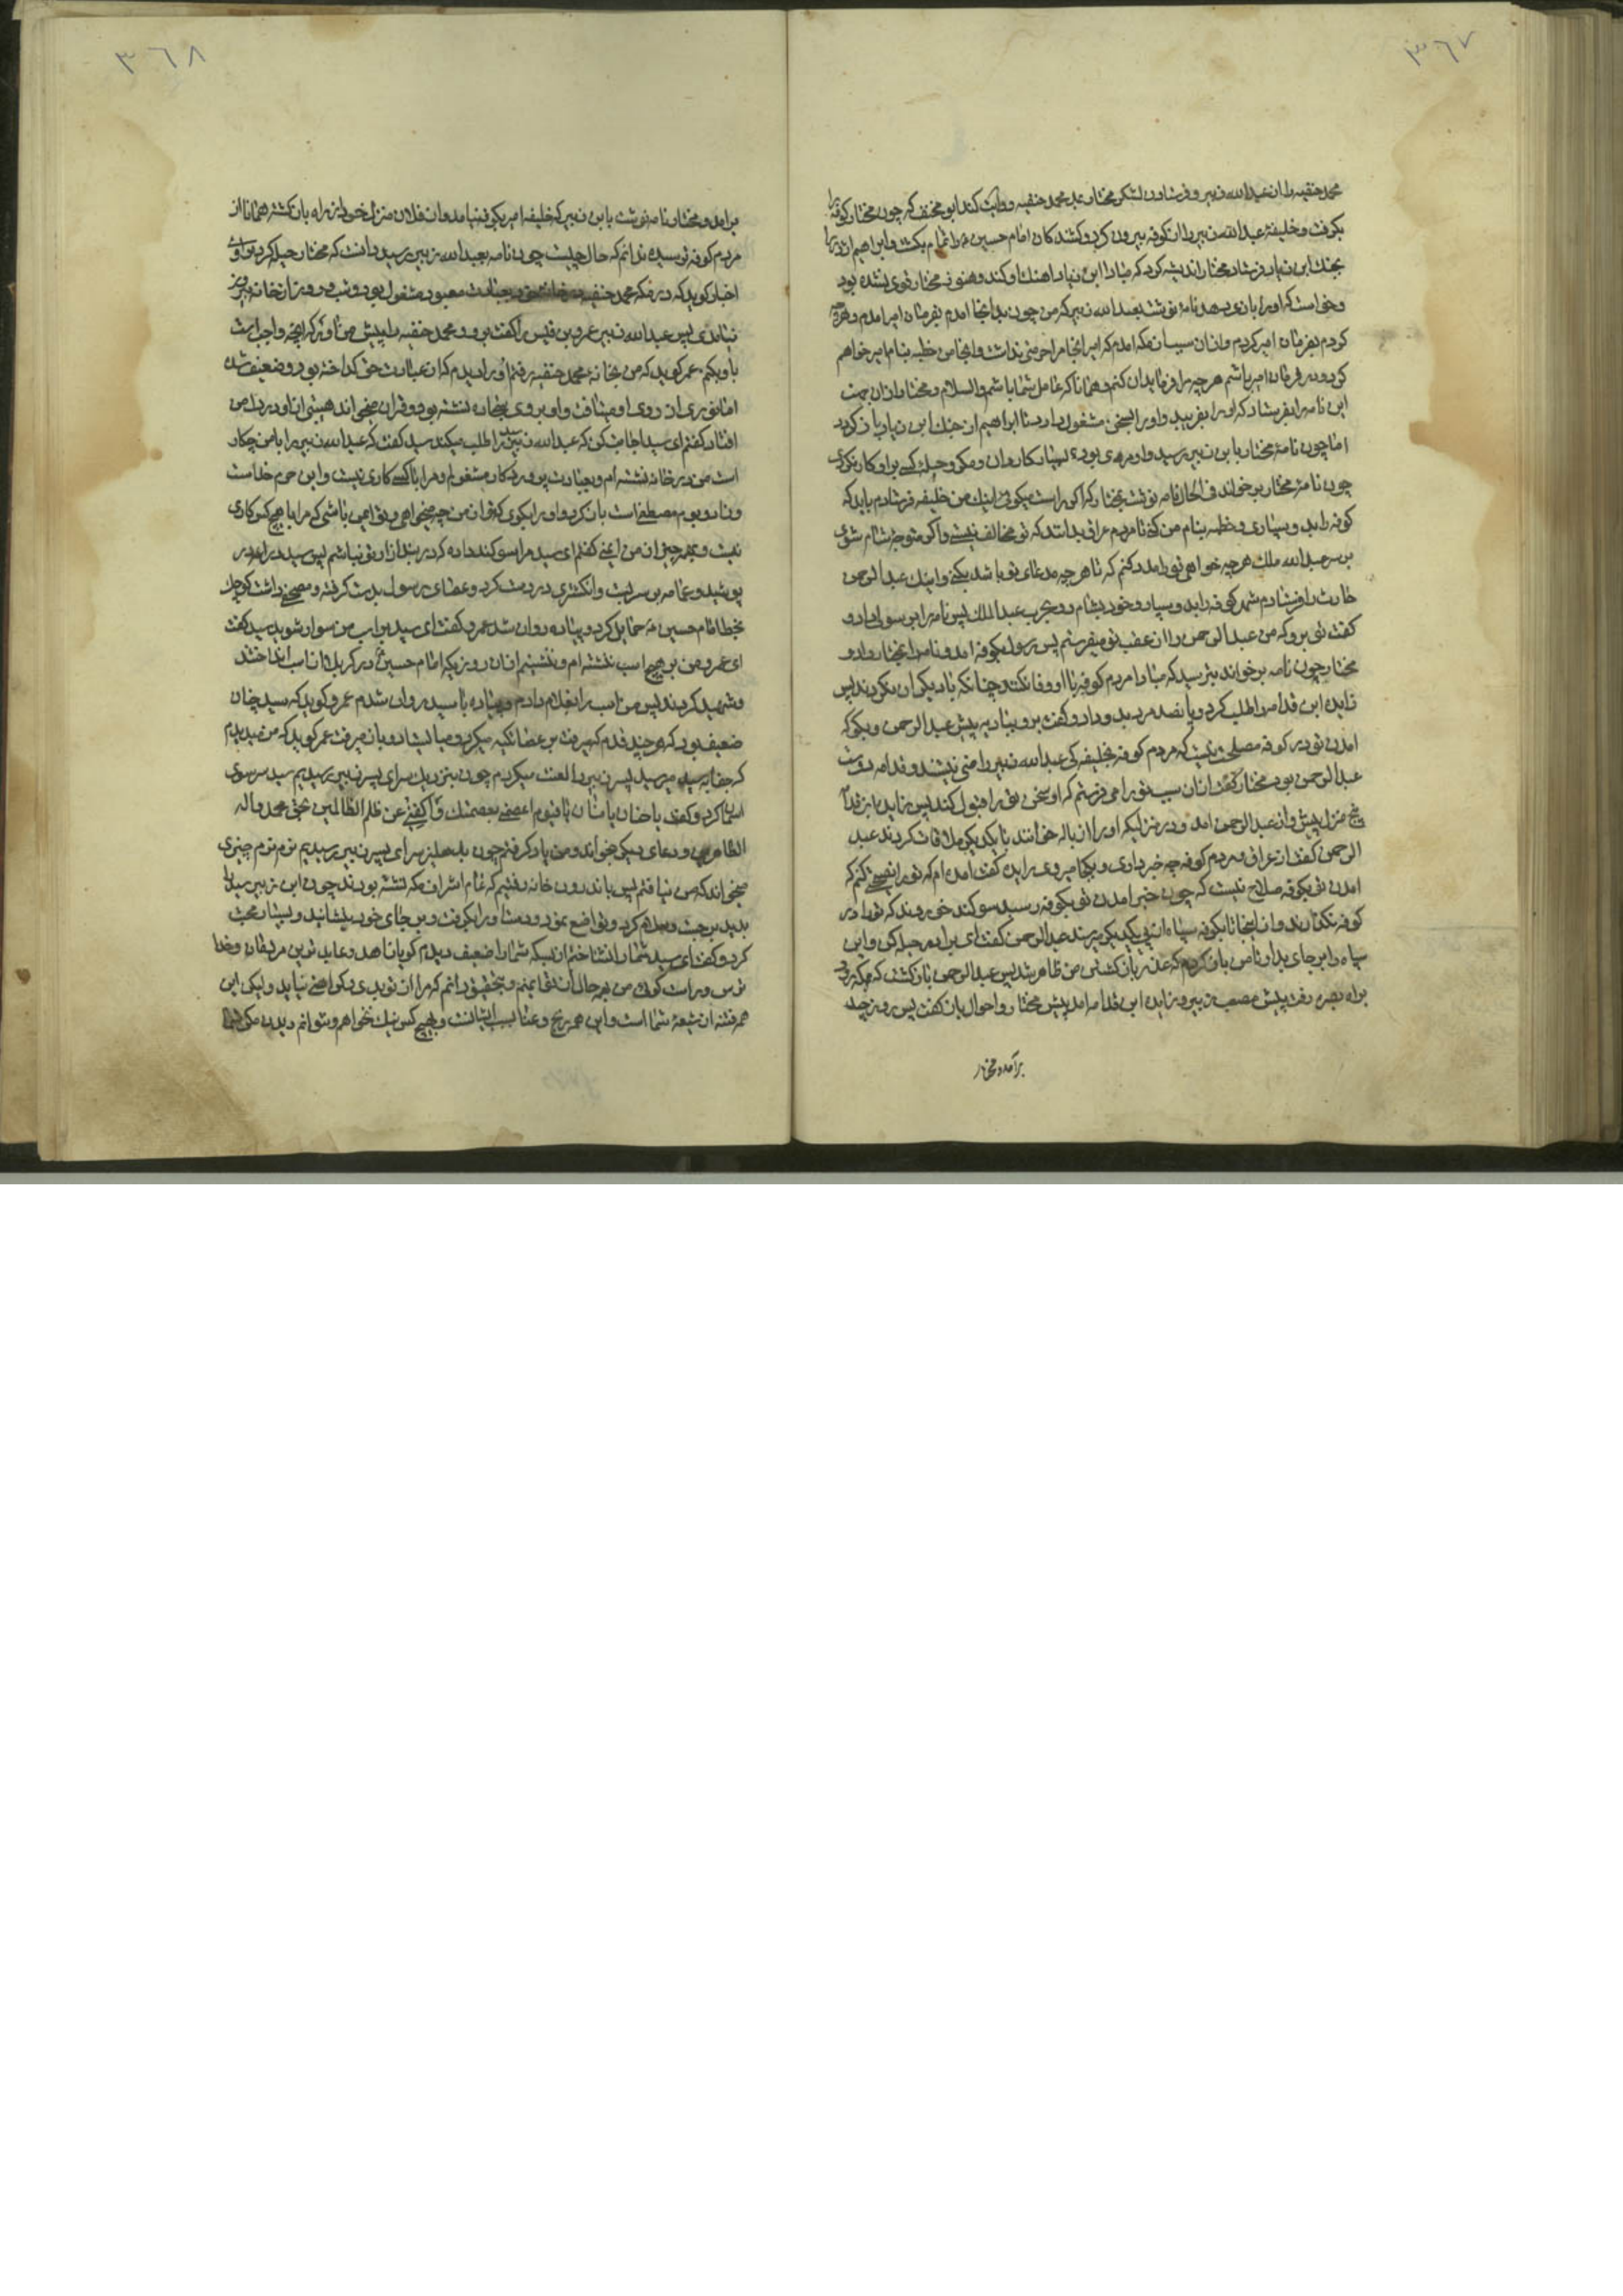 ٣٦٧
محمد حنفیه را از عبدالله زبیر و فرستادن لشکر مختار بمدد محمد حنفیه روایت کند ابو مخنف که چون مختار کوفه را
بکرفت و خلیفهٔ عبدالله زبیر را از کوفه بیرون کرد و کشندکان امام حسین را تمام بکشت و ابراهیم اژدر را
بجنك ابن زیاد فرستاد مختار اندیشه کرد که مبادا ابن زیاد اهنك او کند و هنوز مختار قوی نشده بود
و خواست که او را بازی دهد نامهٔ نوشت بعبدالله زبیر که من چون بدانجا امدم بفرمان امیر امدم و هرچه
کردم بفرمان امیر کردم و از ان سبب از مکه امدم که امیر انجا مرا حرمتی نداشت و اینجا من خطبه بنام امیر خواهم
کرد و در فرمان امیر باشم هر چه مرا فرماید ان کنم و همانا که عامل شما باشم والسلام و مختار از ان جهت
این نامه را بفرستاد که او را بفریبد و او را بسخن مشغول دارد تا ابراهیم از جنك ابن زیاد باز کردد
اما چون نامهٔ مختار بابن زبیر رسید و او مردی بود بسیار کاردان و مکر و حیله کسی بر او کار نکردی
چون نامهٔ مختار برخواند فی الحال نامه نوشت بمختار که اکر راست میکوئی اینك من خلیفه فرستادم باید که
کوفه را بدو بسپاری و خطبه بنام من کنی تا مردم عراق بدانند که تو مخالف نیستی و اکر متوجه شام شوی
بر سر عبدالله ملك هر چه خواهی تو را مدد کنم که تا هر چه مدعای تو باشد بکنی و اینك عبدالرحمن
حارث را فرستادم شهر کوفه را بدو سپار و خود بشام رو بحرب عبدالملك پس نامه را برسولی داد و
کفت تو برو که من عبدالرحمن را از عقب تو میفرستم پس رسول بکوفه امد و نامه را بمختار داد و
مختار چون نامه برخواند بترسید که مبادا مردم کوفه با او وفا نکنند و چنانکه با دیکران نکردند پس
زایده ابن قدامه را طلب کرد و پانصد مرد بدو داد و کفت برو بسادیه پیش عبدالرحمن و بکو که
امدن تو در کوفه مصلحت نیست که مردم کوفه بخلیفه کی عبدالله زبیر راضی نیستند و قدامه دوست
عبدالرحمن بود مختار کفت از ان سبب تو را می فرستم که او سخن تو را قبول کند پس زایده ابن قدامه
پنج منزل پیش واز عبدالرحمن امد و در منزلیکه او را زباله خوانند با یکدیکر ملاقات کردند عبد
الرحمن کفت از عراق و مردم کوفه چه خبر داری و بکجا میروی زایده کفت امده ام که تو را نصیحت کنم که
امدن تو بکوفه صلاح نیست که چون خبر امدن تو بکوفه رسید سوکند خوردند که تو را در
کوفه نکذارند و از اینجا تا بکوفه سپاه از پی یکدیکر میرسند عبدالرحمن کفت ای برادر حیله کن و این
سپاه را بر جای بدار تا من باز کردم که عذر باز کشتن من ظاهر شد پس عبدالرحمن باز کشت که بمکه رود
براه بصره رفت پیش مصعب زبیر و زایده ابن قدامه امد پیش مختار و احوال باز کفت پس روز چند
برآمد و مختار
٣٦٨
برامد و مختار نامه نوشت بابن زبیر که خلیفه امیر بکوفه نیامد و از فلان منزل خود از راه باز کشته همانا از
مردم کوفه ترسیده ندانم که حال چیست چون نامه بعبدالله زبیر رسید دانست که مختار حیله کرد
اخبار کوید که در مکه محمد حنفیه در خانهٔ خود بعبادت معبود مشغول بود و شب و روز از خانه بیرون
نیامدی پس عبدالله زبیر عمرو بن قیس را کفت برو و محمد حنفیه را پیش من اور که انچه واجبست
با او بکنم عمر کوید که من بخانهٔ محمد حنفیه رفتم او را دیدم که از عبادت حق کداخته بود و ضعیف شده
اما نوری از روی او میتافت و او بر روی سجاده نشسته بود و قران میخواند هیبتی از او در دل من
افتاد کفتم ای سید اجابت کن که عبدالله زبیر ترا طلب میکند سید کفت که عبدالله زبیر را با من چکار
است من در خانه نشسته ام و بعبادت پروردکار مشغولم و مرا با کسی کاری نیست و این حرم خداست
و زاد و بوم مصطفی است باز کرد و او را بکوی که تو از من چه میخواهی و تو ایمن باشی که مرا با هیچ کس کاری
نیست و بهمه چیز از من ایمنی کفتم ای سید مرا سوکند داده که در بند ازار تو نباشم پس سید درامد در
پوشید و عمامه بر سر بست و انکشتری در دست کرد و عصای رسول بدست کرفته و مصحفی داشت کوچك
بخط امام حسین حمایل کرد و پیاده روان شد عمرو کفت ای سید بر اسب من سوار شوید سید کفت
ای عمرو من بر هیچ اسب ننشسته ام و ننشینم از ان روزیکه امام حسین را در کربلا از اسب انداختند
و شهید کردند پس من اسب را بغلام دادم و پیاده با سید روان شدم عمرو کوید که سید چنان
ضعیف بود که هر چند قدم که میرفت بر عصا تکیه میکرد و می ایستاد و باز میرفت عمر کوید که من میدیدم
که جفا به سید میرسید پسر زبیر را لعنت میکردم چون بنزدیك سرای پسر زبیر رسیدیم سید سر سوی
اسمان کرد و کفت یا حنان یا منان یا قیوم اعصمنی بعصمتك و اکفنی عن ظلم الظالمین بحق محمد و اله
الطاهرین و دعای دیکر بخواند و من یاد کرفتم چون بدهلیز سرای پسر زبیر رسیدیم نرم نرم چیزی
میخواند که من نیافتم پس باندرون خانه رفتیم که تمام اشراف مکه نشسته بودند چون ابن زبیر سید را
بدید برجست و سلام کرد و تواضع نمود و دست او را بکرفت و بر جای خود بنشانید و بسیار محبت
کرد و کفت ای سید شما را نشناختم از بسکه شما را ضعیف دیدم کویا زاهد و عابد ترین مردمان و خدا
ترس و راست کوئی من بهر حال از تو ایمنم و بتحقیق دانم که مرا از تو بدی و ناخوشی نیاید ولیکن این
همه فتنه از شیعهٔ شما است و این همه رنج و عنا بسبب ایشانست و هیچ کس نیك نخواهم و نتوانم دیدن مکر شما